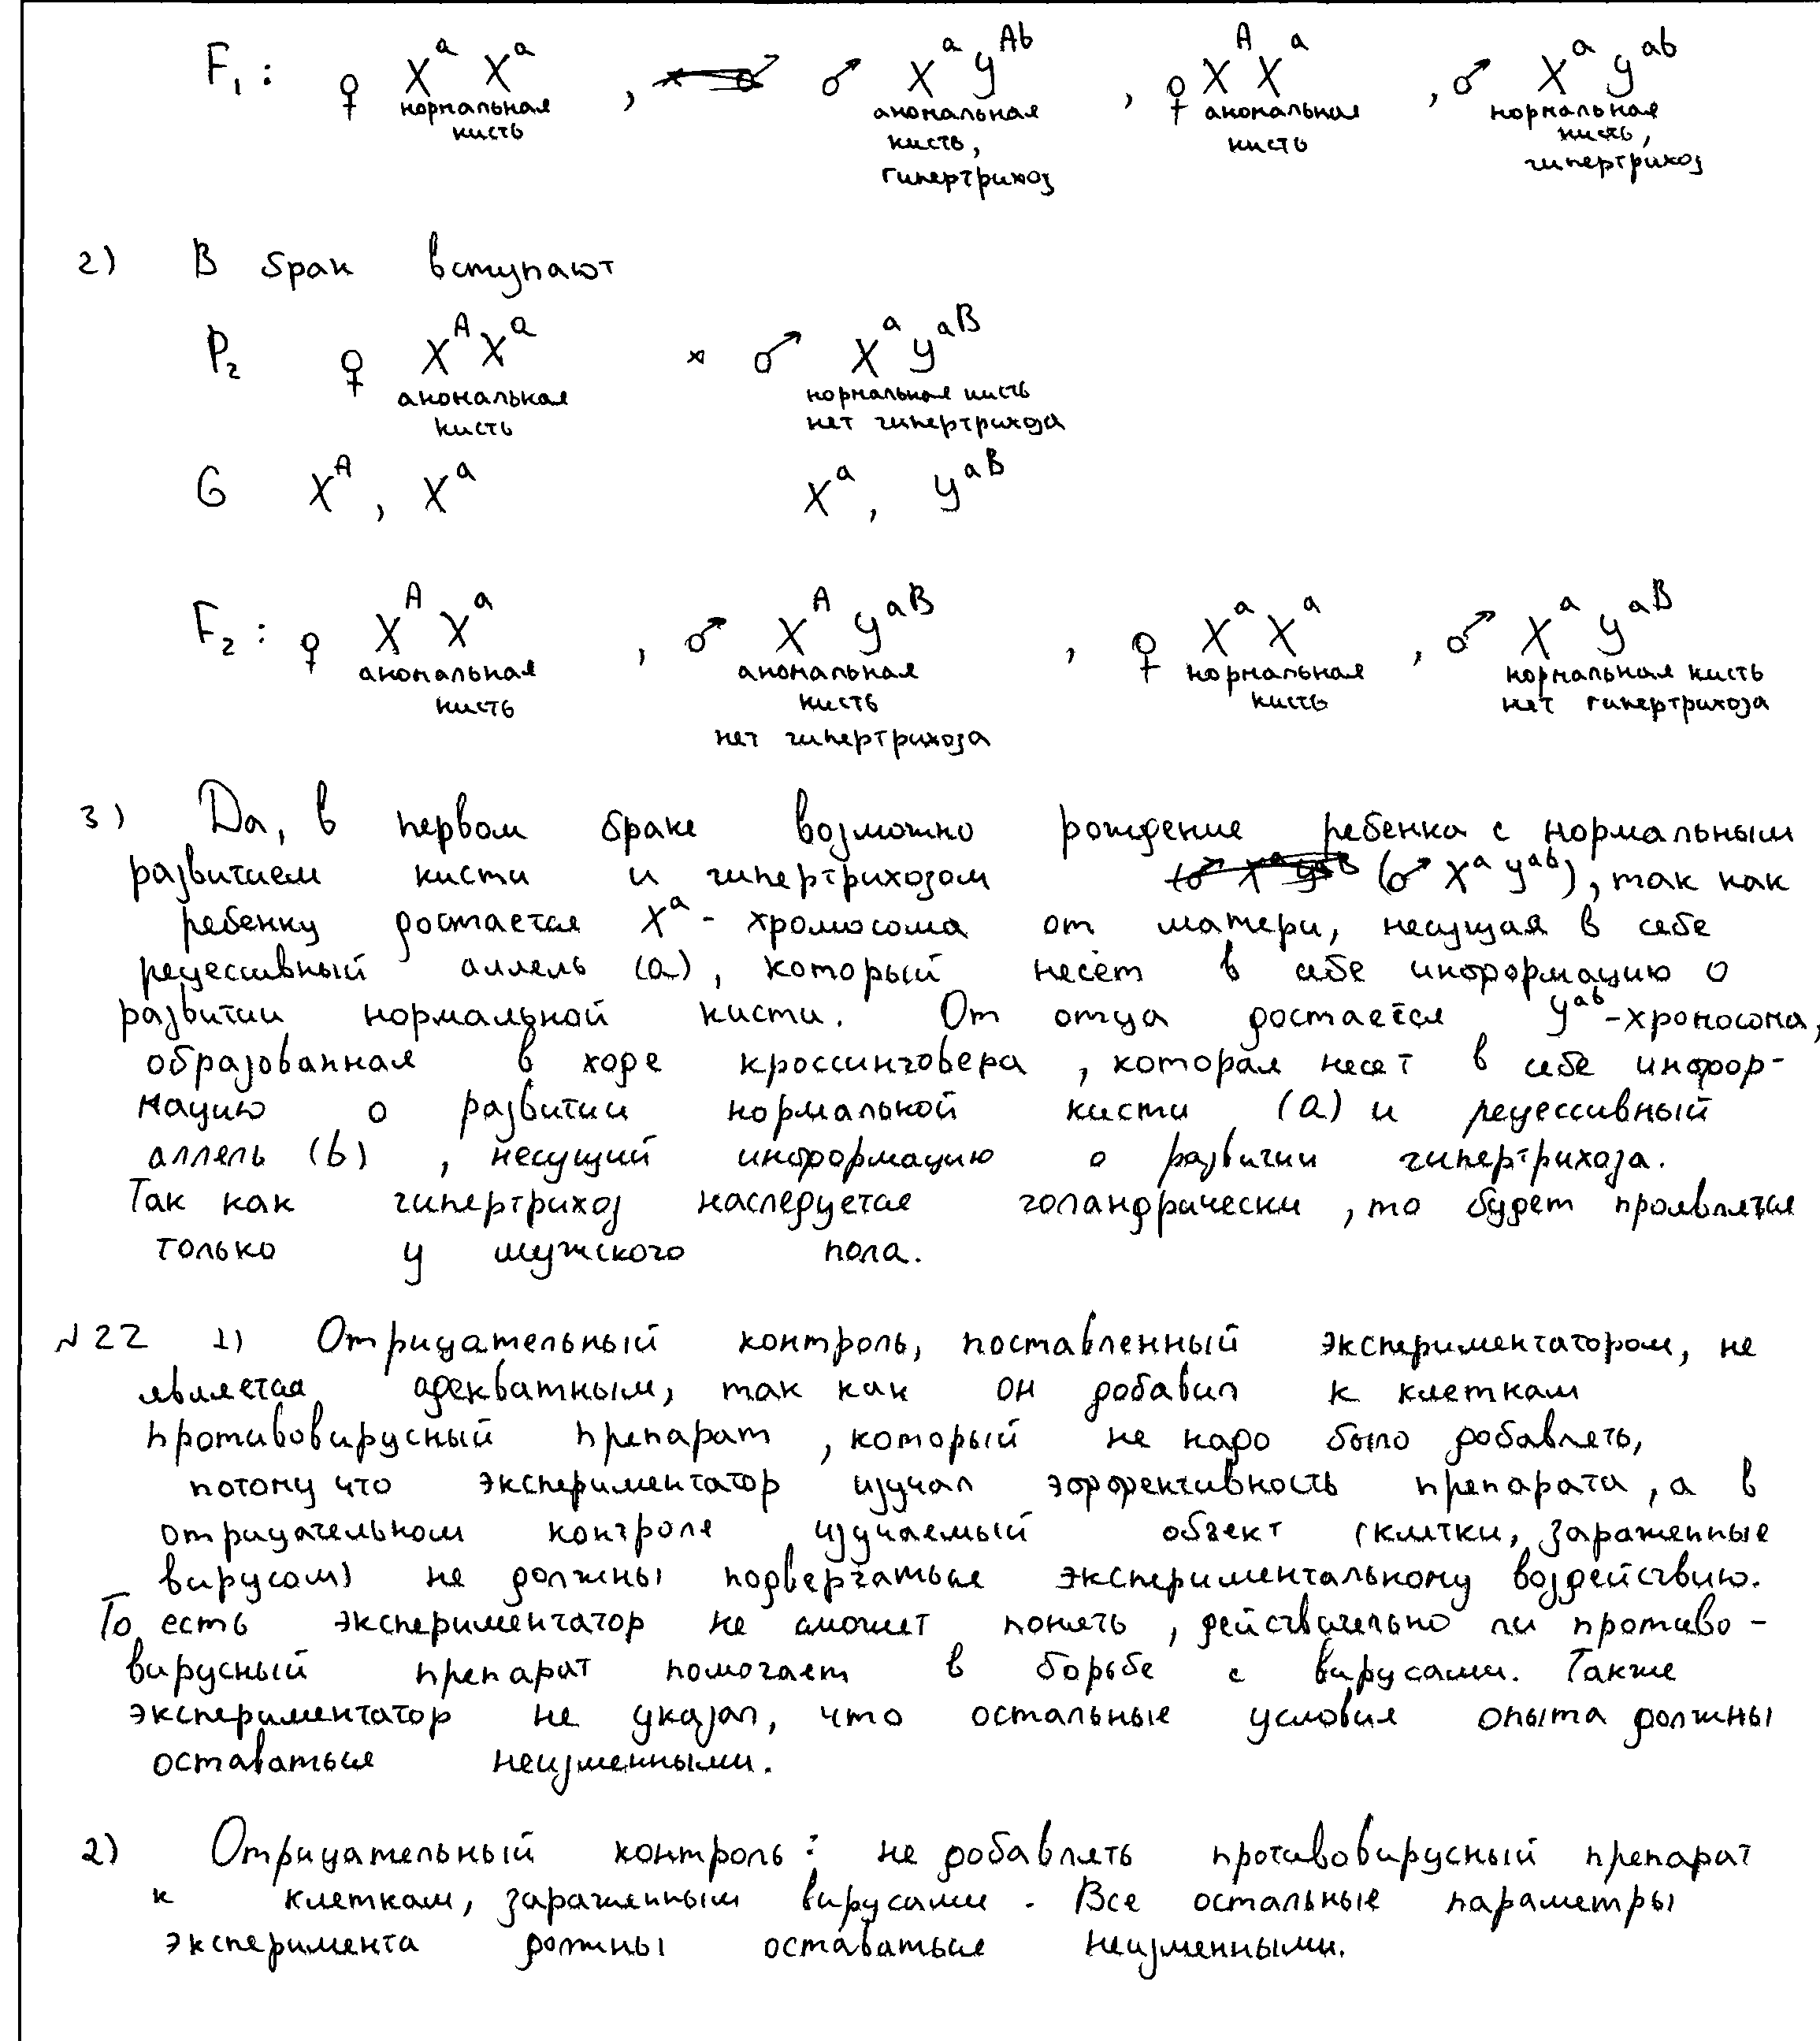 F₁: ♀ Xᵃ Xᵃ , ♂ Xᵃ Yᴬᵇ , ♀ Xᴬ Xᵃ , ♂ Xᵃ Yᵃᵇ
нормальная кисть
аномальная кисть, гипертрихоз
аномальная кисть
нормальная кисть, гипертрихоз
2) В брак вступают
P₂ ♀ Xᴬ Xᵃ × ♂ Xᵃ Yᵃᴮ
аномальная кисть
нормальная кисть
нет гипертрихоза
G Xᴬ, Xᵃ Xᵃ, Yᵃᴮ
F₂: ♀ Xᴬ Xᵃ , ♂ Xᴬ Yᵃᴮ , ♀ Xᵃ Xᵃ , ♂ Xᵃ Yᵃᴮ
аномальная кисть
аномальная кисть нет гипертрихоза
нормальная кисть
нормальная кисть нет гипертрихоза
3) Да, в первом браке возможно рождение ребенка с нормальным
развитием кисти и гипертрихозом (♂ Xᵃ Yᵃᵇ), так как
ребенку достается Xᵃ - хромосома от матери, несущая в себе
рецессивный аллель (а), который несёт в себе информацию о
развитии нормальной кисти. От отца достается Yᵃᵇ-хромосома,
образованная в ходе кроссинговера, которая несет в себе инфор-
мацию о развитии нормальной кисти (а) и рецессивный
аллель (b), несущий информацию о развитии гипертрихоза.
Так как гипертрихоз наследуется голандрически, то будет проявляться
только у мужского пола.
№22 1) Отрицательный контроль, поставленный экспериментатором, не
является адекватным, так как он добавил к клеткам
противовирусный препарат, который не надо было добавлять,
потому что экспериментатор изучал эффективность препарата, а в
отрицательном контроле изучаемый объект (клетки, зараженные
вирусом) не должны подвергаться экспериментальному воздействию.
То есть экспериментатор не сможет понять, действительно ли противо-
вирусный препарат помогает в борьбе с вирусами. Также
экспериментатор не указал, что остальные условия опыта должны
оставаться неизменными.
2) Отрицательный контроль: не добавлять противовирусный препарат
к клеткам, зараженным вирусами. Все остальные параметры
эксперимента должны оставаться неизменными.